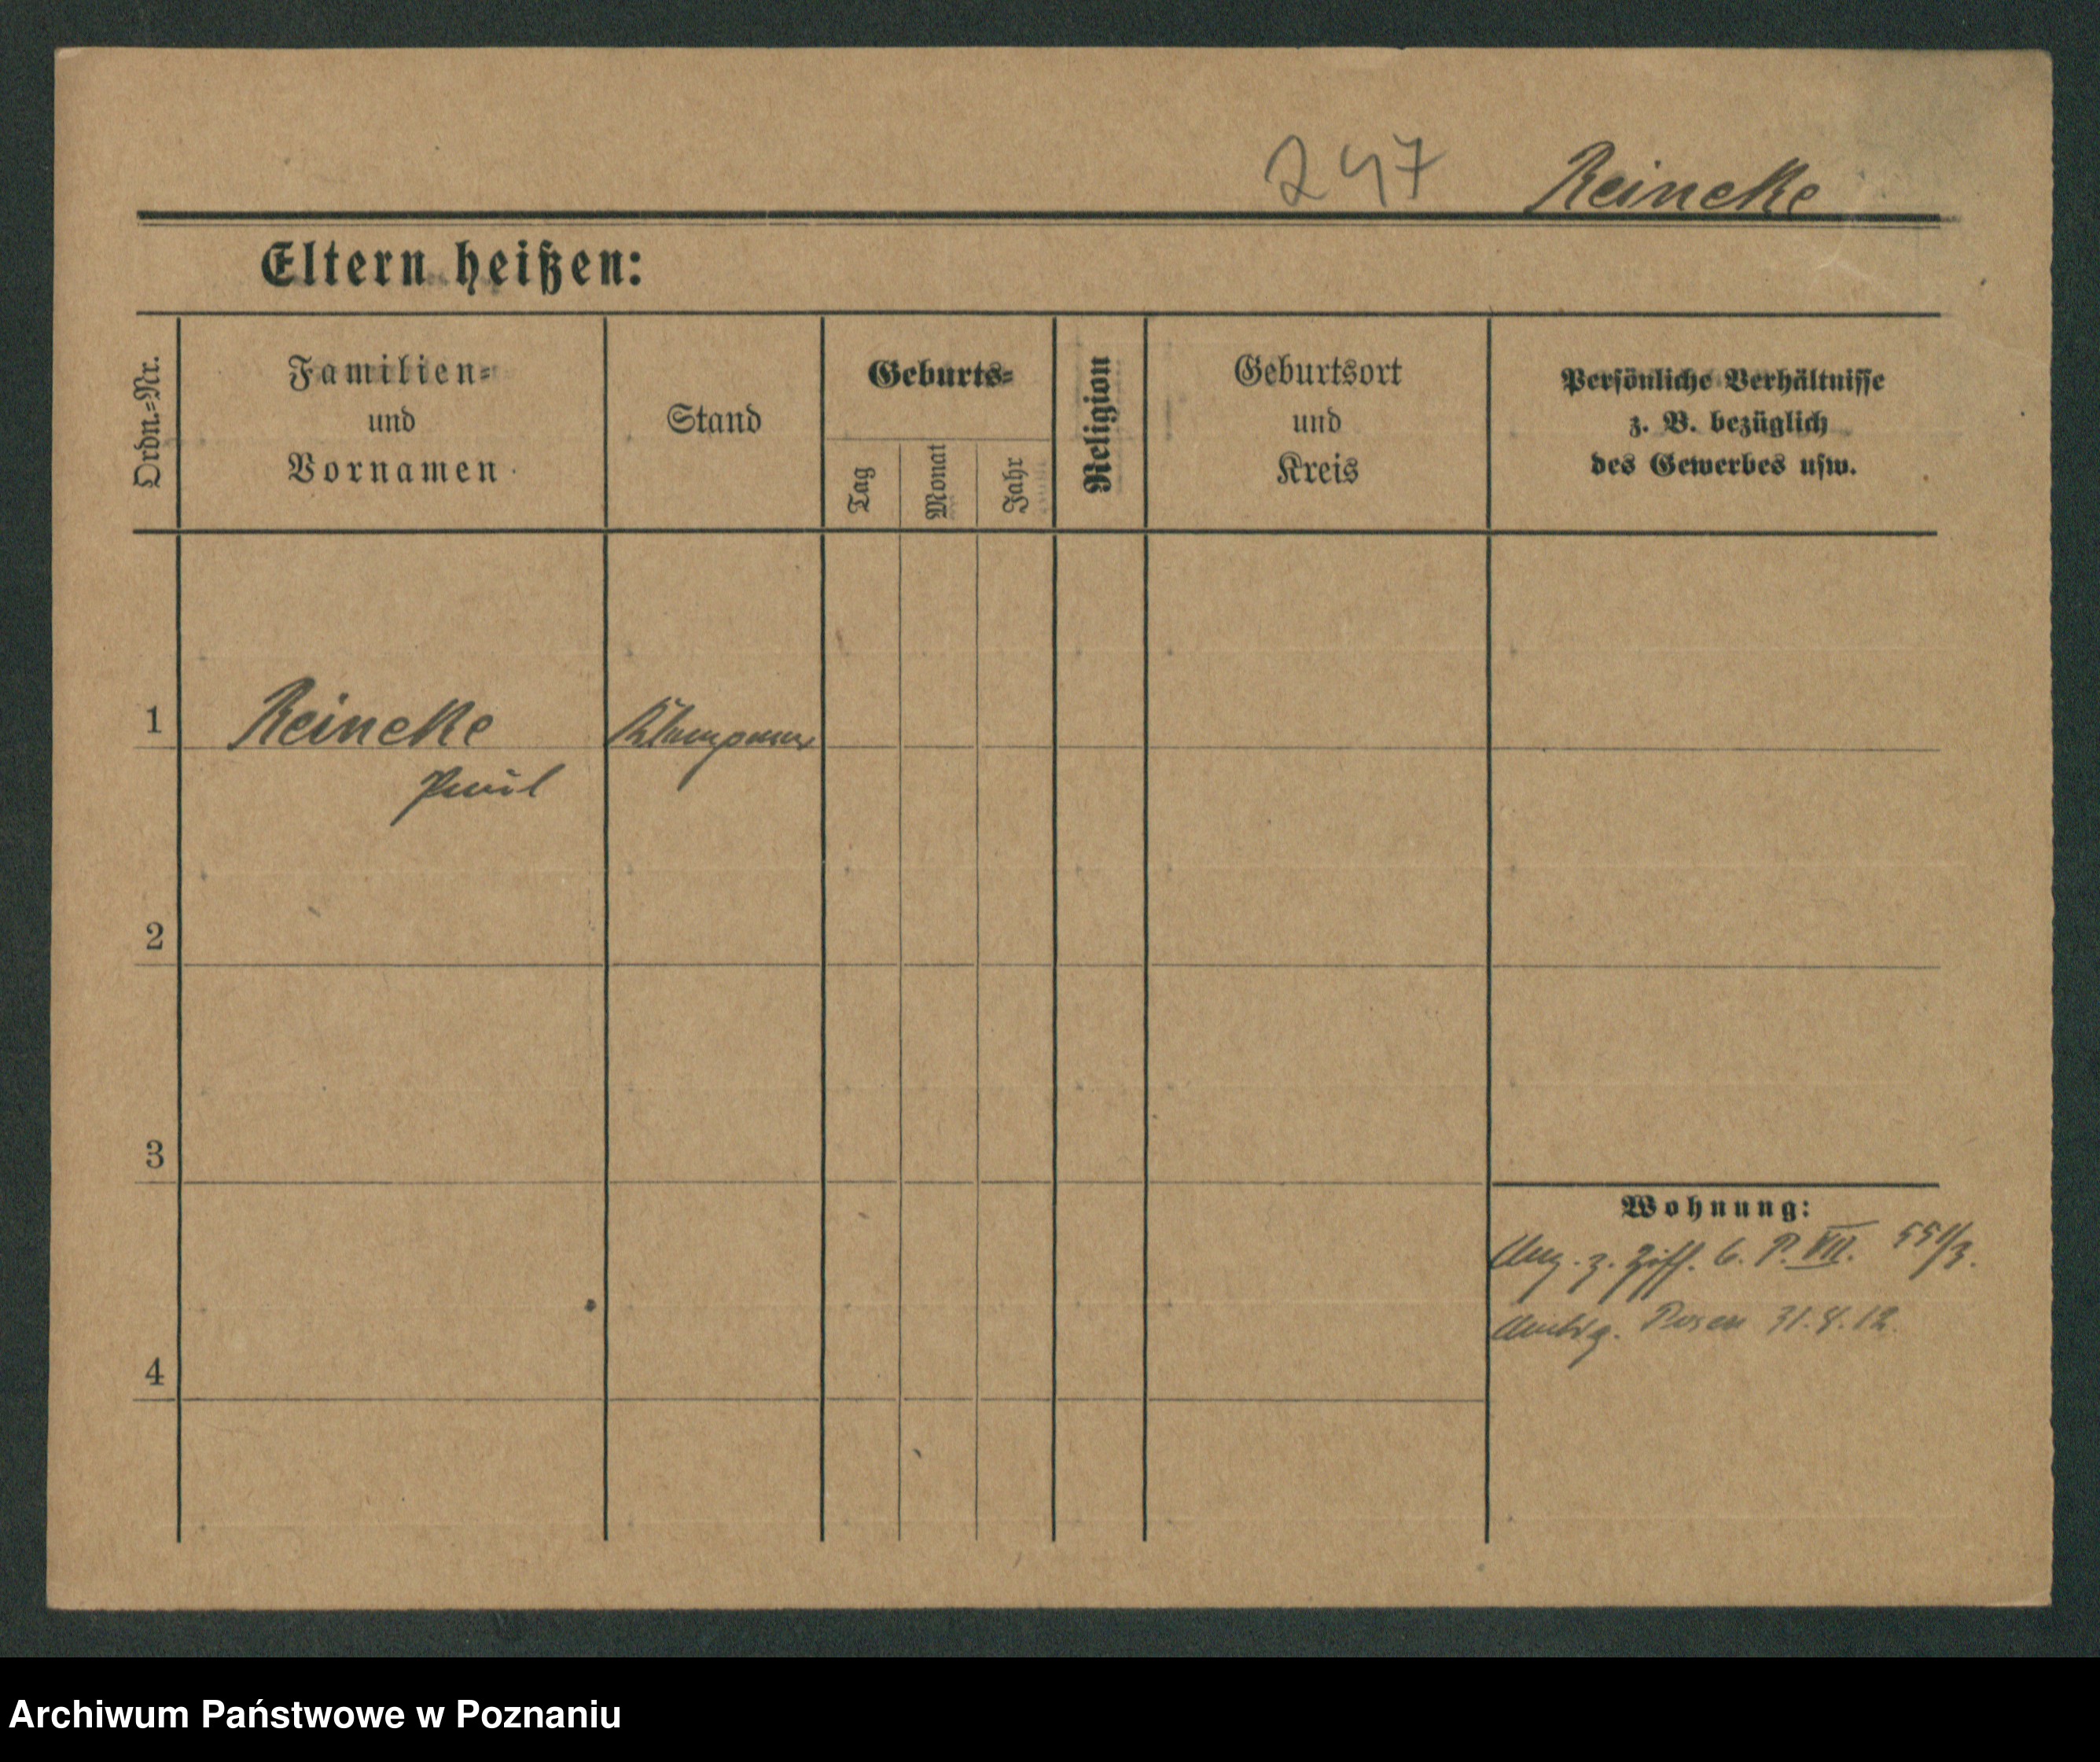 247 Reineke
Eltern heißen:
Ordn.=Nr.
Familien=
und
Vornamen
Stand
Geburts=
Tag
Monat
Jahr
Religion
Geburtsort
und
Kreis
Persönliche Verhältnisse
z. B. bezüglich
des Gewerbes usw.
1 Reineke Klempner
Paul
2
3
Wohnung:
z. Ziff. 6. P. VII.
Posen 31.8.12.
4
Archiwum Państwowe w Poznaniu